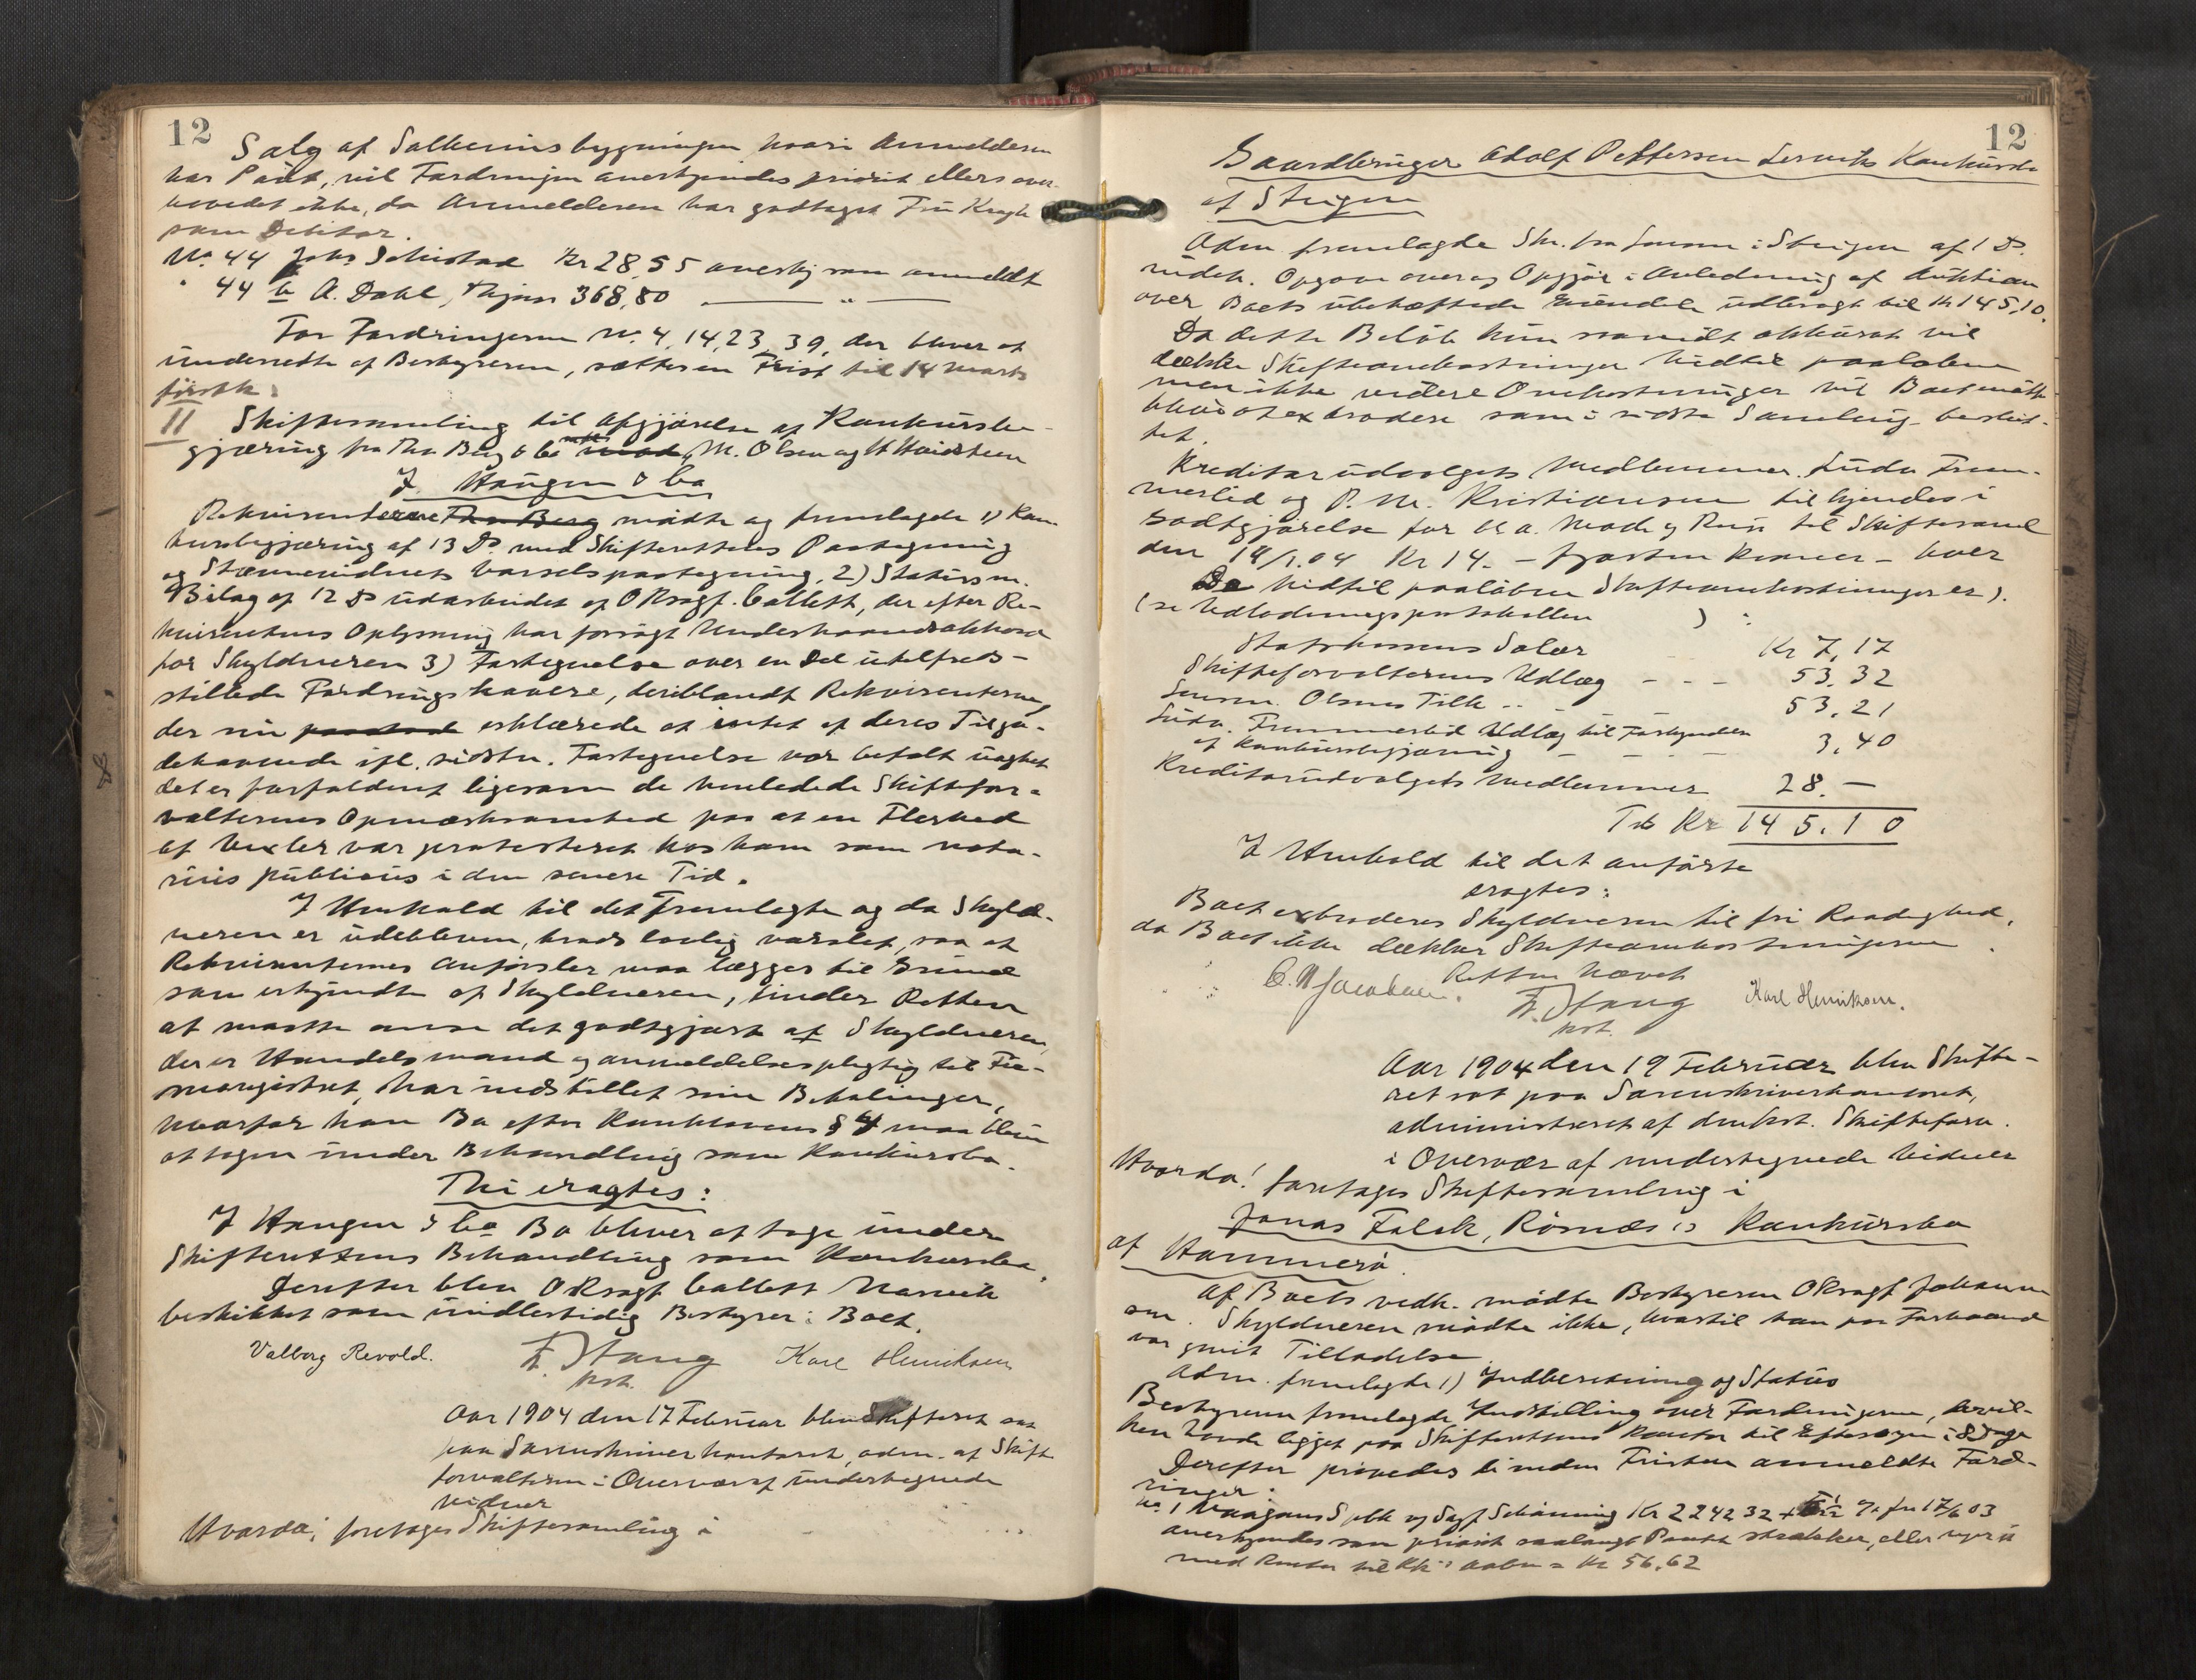 12
Salg af Salteriersbygningen hvori Anmelderen
har Pant, vil Fordringen anerkjendes priorit. ellers over-
hovedet ikke, da Anmelderen har godtaget Fru Krogh
som Debitor.
No 44 Johs Schistad Kr 28,55 anerkj som anmeldt
" 44 b A. Dahl, 368,80 — " —
For Fordringerne No. 4, 14, 23, 39, der bliver at
underrette af Bestyreren, sættes en Frist til 14 Marts
førstk.
II Skiftesamling til Afgjørelse af Konkursbe-
gjæring fra Thv Berg & Co M. Olsen og
J. Haugen & Co
Rekvirenterne mødte og fremlagde 1) Kon-
kursbegjæring af 13 Ds. med Skifterettens Paategning
og Stævnevidnets Varselspaategning, 2) Status m.
Bilag af 12 Ds udarbeidet af ORsagf. Callett, der efter Re-
kvirentens Oplysning har forsøgt Underhaandsakkord
for Skyldneren 3) Fortegnelse over en Del utilfreds-
stillede Fordringshavere, deriblandt Rekvirenterne,
der nu erklærede at intet af deres Tilgo-
dehavende ifl. sidstn. Fortegnelse var betalt uagtet
det er forfaldent ligesom de henledede Skiftefor-
valterens Opmærksomhed paa at en Flerhed
af Vexler var protesteret hos ham som nota-
rius publicus i den senere Tid.
I Henhold til det Fremlagte og da Skyld-
neren er udebleven, trods lovlig varslet, saa at
Rekvirenternes Anførsler maa lægges til Grund
som erkjendte af Skyldneren, finder Retten
at maatte anse det godtgjort at Skyldneren,
der er Handelsmand og anmeldelsespligtig til Fir-
maregistret, har indstillet sine Betalinger,
hvorfor hans Bo efter Konkurslovens § 4 maa blive
at tagen under Behandling som Konkursbo.
Thi eragtes:
J Haugen & Co Bo bliver at tage under
Skifterettens Behandling som Konkursbo.
Derefter blev ORsagf Callett Narvik
beskikket som midlertidig Bestyrer i Boet.
Valborg Revold. F. Stang Karl Henriksen
kst.
Aar 1904 den 17 Februar blev Skifteret sat
paa Sorenskriverkontoret, adm. af Skifte
forvalteren i Overvær af undertegnede
Vidner
Hvorda: foretoges Skiftesamling i
12
Gaardbruger Adolf Pettersen Leroviks Konkursbo
af Steigen
Adm. fremlagde Skr. fra Lensm. i Steigen af 1 Ds.
vedk. Opgave over og Opgjør i Anledning af Auktion
over Boets ubehæftede Eiendele udbragt til Kr 145,10.
Da dette Beløb kun saavidt akkurat vil
dække Skifteomkostninger hidtil paaløbne
men ikke videre Omkostninger vil Boet maatte
blive at extradere som i sidste Samling beslut-
tet.
Kreditorudvalgets Medlemmer Ludv Trem-
merlid og P. M. Kristiansen tilkjendes i
Godtgjørelse for bl. a. Møde og Reise til Skiftesaml
den 19/1.04 Kr 14. – fjorten Kroner – hver
De hidtil paaløbne Skifteomkostninger er).
(se Udlodningsprotokollen ) :
Statskassens Salær Kr 7,17
Skifteforvalterens Udlæg - - - 53,32
Lensm. Olsens Tilh - - - 53,21
Ludv. Tremmerlid Udlæg til Forkyndelse
af Konkursbegjæring - - - 3,40
Kreditorudvalgets Medlemmer 28.—
Tils Kr 145.10
I Henhold til det anførte
eragtes:
Boet extraderes Skyldneren til fri Raadighed,
da Boet ikke dækker Skifteomkostningerne.
Retten hævet
C. N Jacobsen. F. Stang Karl Henriksen.
kst.
Aar 1904 den 19 Februar blev Skifte-
ret sat paa Sorenskriverkontoret,
administreret af den kst. Skifteforv.
i Overvær af undertegnede Vidner
Hvorda! foretoges Skiftesamling i
Jonas Falck, Rösnæs's Konkursbo
af Hammerö.
Af Boets vedk. mødte Bestyreren ORsagf Johann
sen. Skyldneren mødte ikke, hvortil han paa Forhaand
var givet Tilladelse
Adm. fremlagde 1) Indberetning og Status
Bestyreren fremlagde Indstilling over Fordringerne, hvil-
ken havde ligget paa Skifterettens Kontor til Eftersyn i 8 Dage
Derefter prøvedes de inden Fristen anmeldte Ford-
ringer:
No 1 Vaagans Spbk v Sagf Schønning Kr 2242 32 + % fra 17/6 03
anerkjendes som priorit. saalangt Pantet strækker, eller
med Renter til Kk's Aabn = Kr 56.62